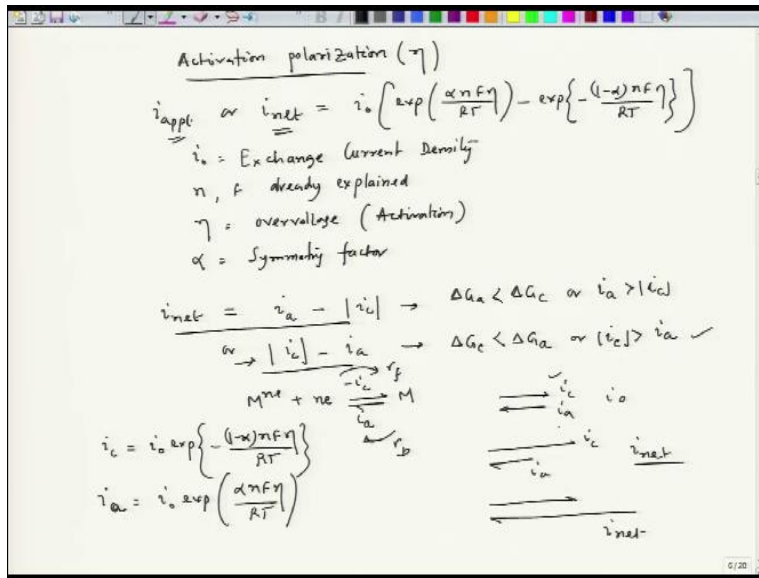 Activation polarization (η)
i_appl. or i_net = i₀ [exp(αnFη/RT) - exp{-(1-α)nFη/RT}]
i₀ = Exchange Current Density
n, F already explained
η = overvoltage (Activation)
α = Symmetry factor
i_net = i_a - |i_c| → ΔG_a < ΔG_c or i_a > |i_c|
or → |i_c| - i_a → ΔG_c < ΔG_a or |i_c| > i_a ✓
r_f
-i_c
M^ne + ne ⇌ M
i_a
r_b
i_c
i_a
i₀
i_c = i₀ exp{-(1-α)nFη/RT}
i_c
i_a
i_net
i_a = i₀ exp(αnFη/RT)
i_net
6/20